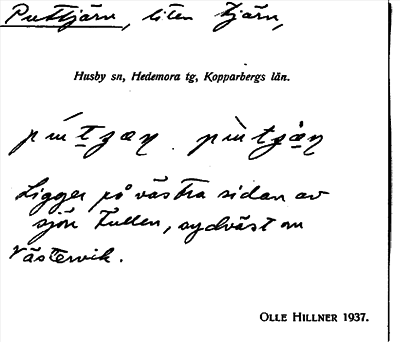 Puttjärn, liten tjärn,
Husby sn, Hedemora tg, Kopparbergs län.
Ligger på västra sidan av
sjön Tullen, sydväst om
Västervik.
OLLE HILLNER 1937.